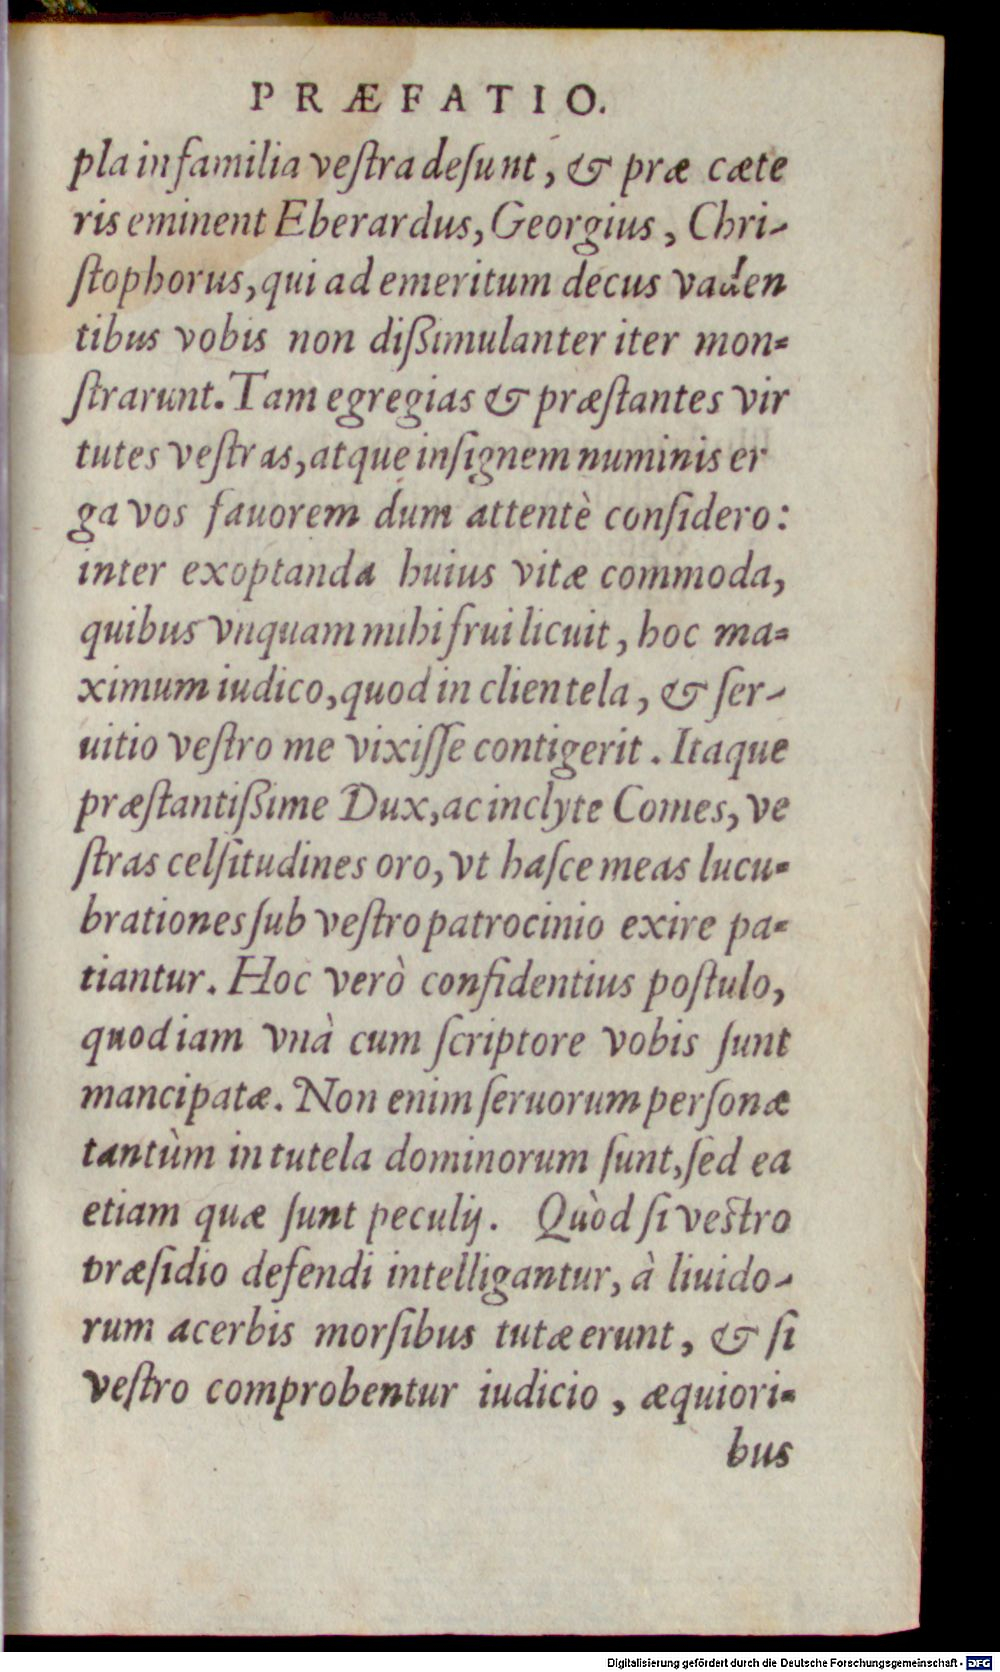 PRÆFATIO.
pla in familia vestra desunt, & præ cæte
ris eminent Eberardus, Georgius, Chri-
stophorus, qui ad emeritum decus vaden
tibus vobis non dißimulanter iter mon=
strarunt. Tam egregias & præstantes vir
tutes vestras, atque insignem numinis er
ga vos fauorem dum attentè considero:
inter exoptanda huius vitæ commoda,
quibus vnquam mihi frui licuit, hoc ma=
ximum iudico, quod in clientela, & ser-
uitio vestro me vixisse contigerit. Itaque
præstantißime Dux, ac inclyte Comes, ve
stras celsitudines oro, vt hasce meas lucu=
brationes sub vestro patrocinio exire pa=
tiantur. Hoc verò confidentius postulo,
quod iam vnà cum scriptore vobis sunt
mancipatæ. Non enim seruorum personæ
tantùm in tutela dominorum sunt, sed ea
etiam quæ sunt peculij. Quòd si vestro
præsidio defendi intelligantur, à liuido-
rum acerbis morsibus tutæ erunt, & si
vestro comprobentur iudicio, æquiori=
bus
Digitalisierung gefördert durch die Deutsche Forschungsgemeinschaft - DFG